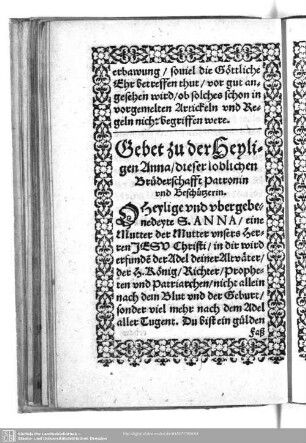 erbawung / souiel die Göttliche
Ehr betreffen thut / vor gut an-
gesehen wird / ob solches schon in
vorgemelten Artickeln vnd Re-
geln nicht begriffen were.
Gebet zu der Heyli-
gen Anna / dieser loblichen
Brüderschafft Patronin
vnd Beschützerin.
O Heylige vnd vbergebe-
nedeyte S. ANNA / eine
Mutter der Mutter vnsers Her-
ren JESV Christi / in dir wird
erfundē der Adel deiner Altvätter /
der H. König / Richter / Prophe-
ten vnd Patriarchen / nicht allein
nach dem Blut vnd der Geburt /
sonder viel mehr nach dem Adel
aller Tugent. Du bist ein gülden
Faß